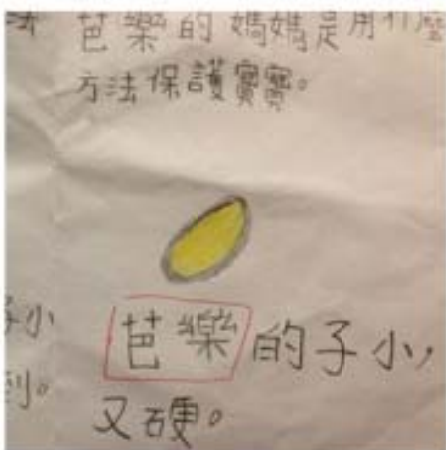 法
芭樂的媽媽是用什麼
方法保護寶寶。
子小
到。
芭樂的子小，
又硬。